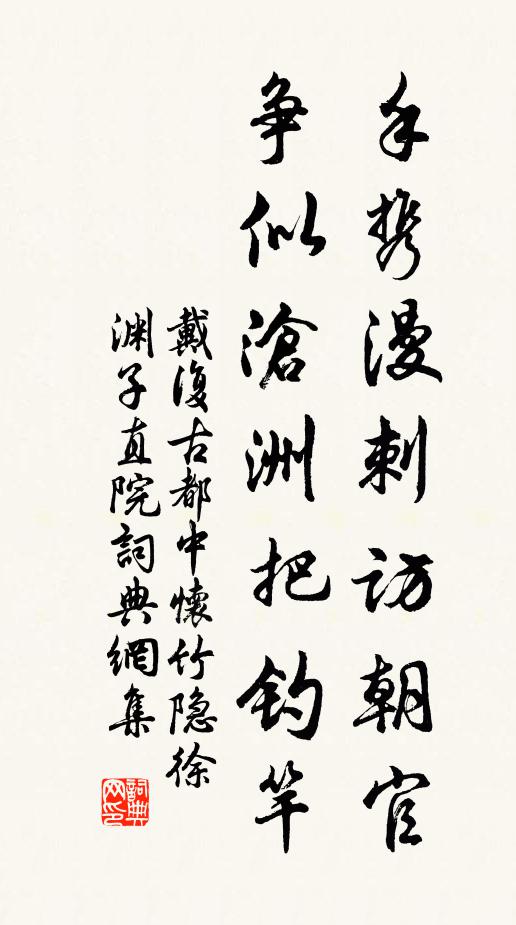 手携漫刺访朝官
争似滄洲把钓竿
戴復古都中懷竹隐徐
渊子直院詞典網集
詞典
网印